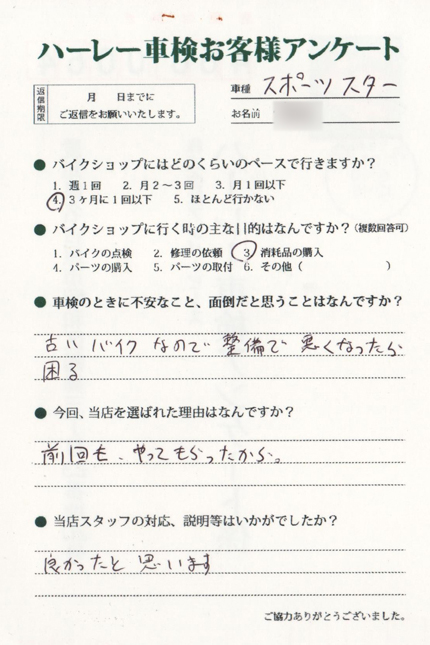 ハーレー車検お客様アンケート
返信期限
月　日までに
ご返信をお願いいたします。
車種 スポーツスター
お名前
● バイクショップにはどのくらいのペースで行きますか?
1. 週1回　2. 月2〜3回　3. 月1回以下
4. 3ヶ月に1回以下　5. ほとんど行かない
● バイクショップに行く時の主な目的はなんですか?(複数回答可)
1. バイクの点検　2. 修理の依頼　3. 消耗品の購入
4. パーツの購入　5. パーツの取付　6. その他(　　　)
● 車検のときに不安なこと、面倒だと思うことはなんですか?
古いバイクなので整備で悪くなったら
困る
● 今回、当店を選ばれた理由はなんですか?
前回も、やってもらったから。
● 当店スタッフの対応、説明等はいかがでしたか?
良かったと思います
ご協力ありがとうございました。